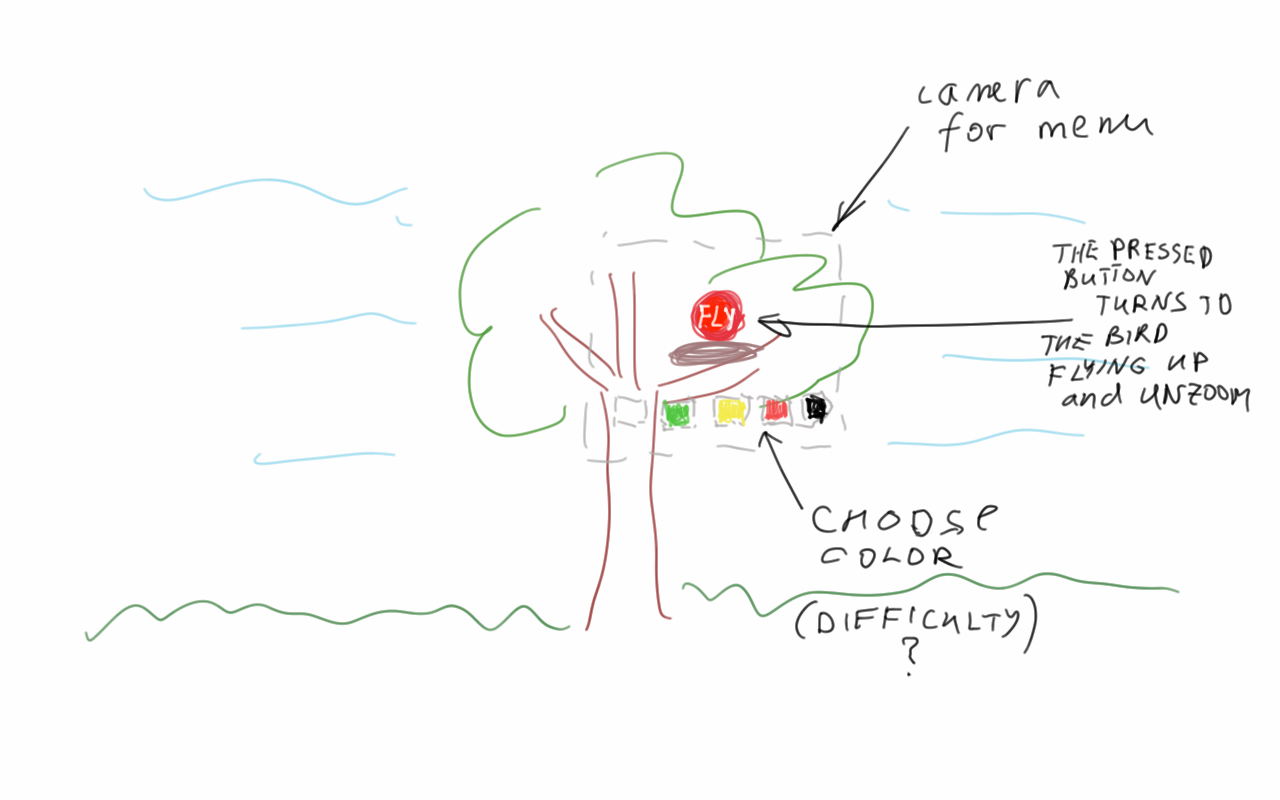 camera
for menu
THE PRESSED
BUTTON
TURNS TO
THE BIRD
FLYING UP
and UNZOOM
FLY
CHOOSE
COLOR
(DIFFICULTY)
?